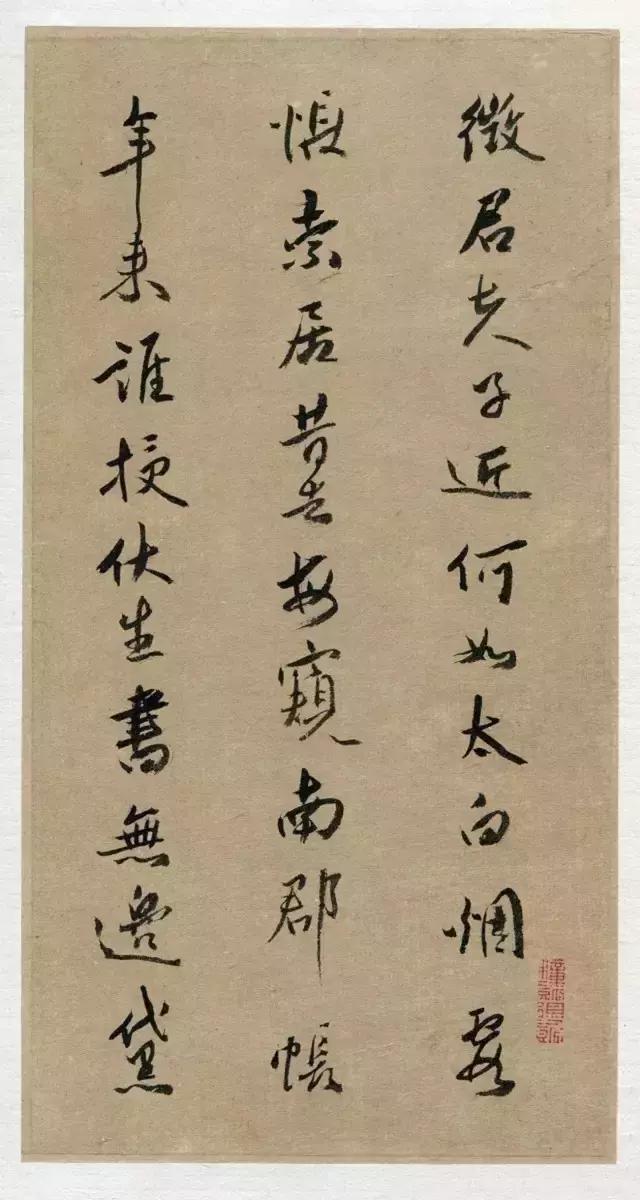 徵君夫子近何如太白烟霞
悵索居昔去每窺南郡帳
年來誰授伏生書無邊黛